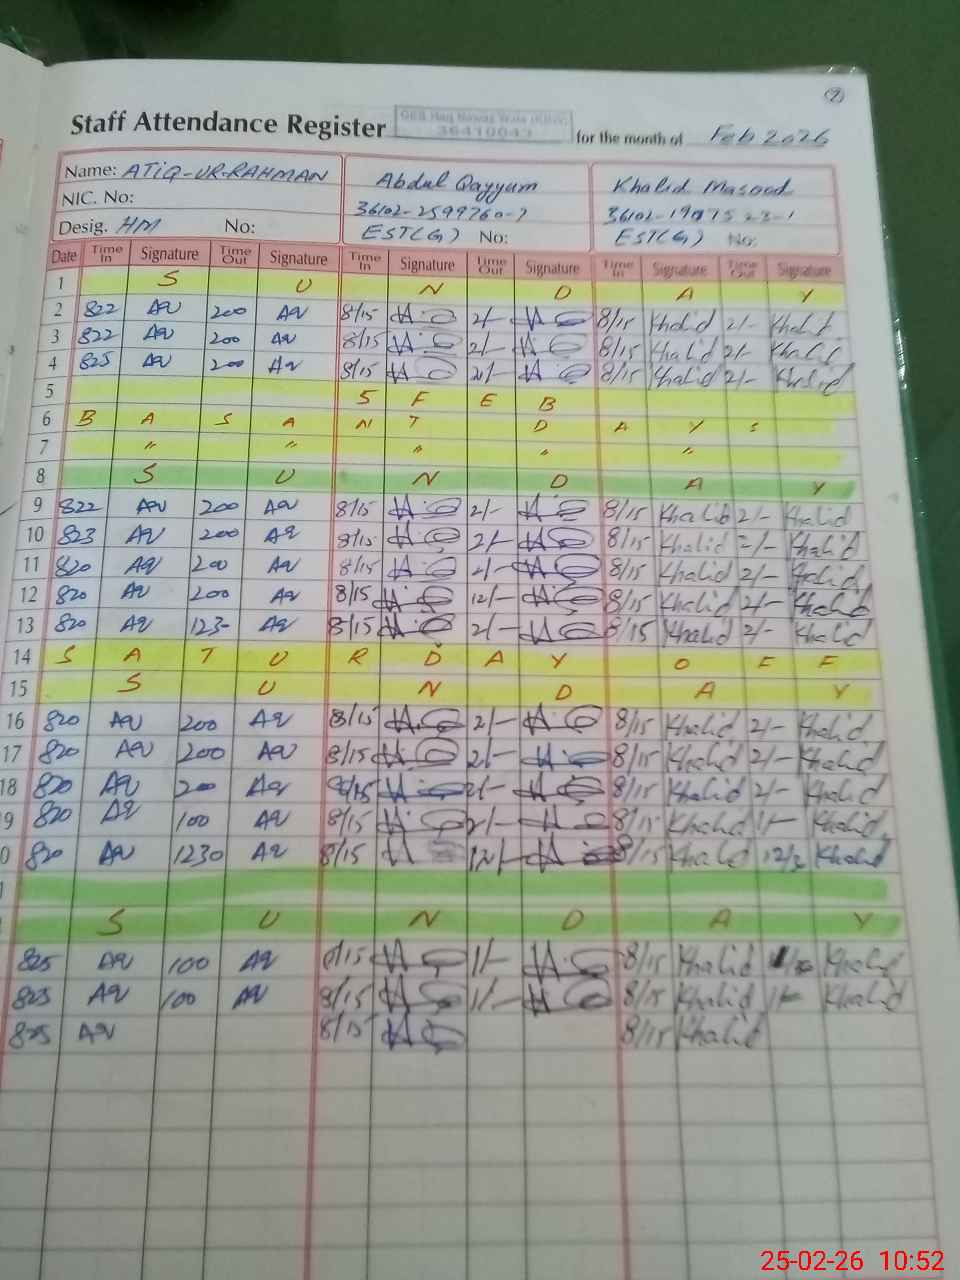 2
Staff Attendance Register 36410043 for the month of Feb 2026
Name: ATIQ-UR-RAHMAN Abdul Qayyum Khalid Masood
NIC. No: 36102-2599760-7
Desig. HM No: EST(G) No: EST(G) No:
Date Time In Signature Time Out Signature Time In Signature Time Out Signature Time In Signature Time Out Signature
1 S U N D A Y
2 822 AQ 200 AQ 8/15 2/- 8/15 Khalid 2/- Khalid
3 822 AQ 200 AQ 8/15 2/- 8/15 Khalid 2/- Khalid
4 825 AQ 200 AQ 8/15 2/- 8/15 Khalid 2/- Khalid
5 5 F E B
6 B A S A N T D A Y S
7 " " " " "
8 S U N D A Y
9 822 AQ 200 AQ 8/15 2/- 8/15 Khalid 2/- Khalid
10 823 AQ 200 AQ 8/15 2/- 8/15 Khalid 2/- Khalid
11 820 AQ 200 AQ 8/15 2/- 8/15 Khalid 2/- Khalid
12 820 AQ 200 AQ 8/15 12/- 8/15 Khalid 2/- Khalid
13 820 AQ 1230 AQ 8/15 2/- 8/15 Khalid 2/- Khalid
14 S A T U R D A Y O F F
15 S U N D A Y
16 820 AQ 200 AQ 8/15 2/- 8/15 Khalid 2/- Khalid
17 820 AQ 200 AQ 8/15 2/- 8/15 Khalid 2/- Khalid
18 820 AQ 200 AQ 8/15 2/- 8/15 Khalid 2/- Khalid
9 820 AQ 100 AQ 8/15 2/- 8/15 Khalid 1/- Khalid
0 820 AQ 1230 AQ 8/15 12/- 8/15 Khalid 12/3 Khalid
S U N D A Y
825 AQ 100 AQ 8/15 1/- 8/15 Khalid Khalid
823 AQ 100 AQ 8/15 1/- 8/15 Khalid 1/- Khalid
825 AQ 8/15 8/15 Khalid
25-02-26 10:52